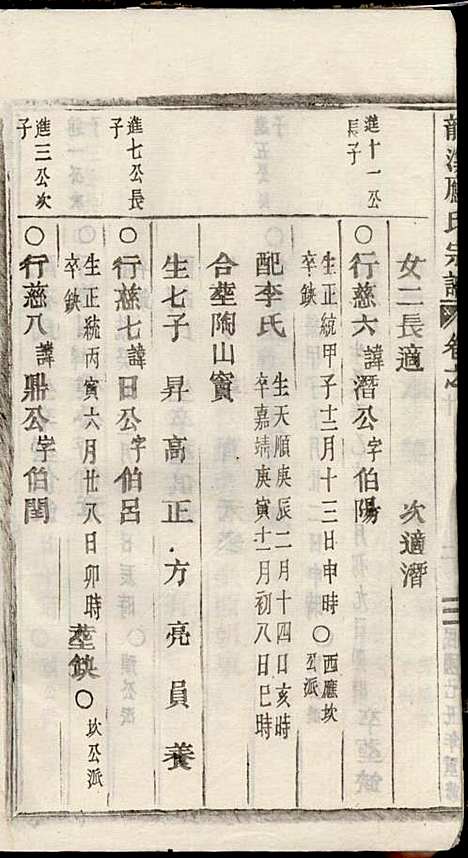 龍溪應氏宗譜 卷之
女二長適 次適潛
進十一公
長子
○行慈六 諱潛公字伯陽
生正統甲子十二月十三日申時
卒缺
○西應坎
公派
配李氏
生天順庚辰二月十四日亥時
卒嘉靖庚寅十一月初八日巳時
合塟陶山寳
生七子 昇 高 正 方 亮 員 養
進七公長
子
○行慈七 諱日公字伯呂
生正統丙寅六月廿八日卯時
卒缺
塟缺
○坎公派
進三公次
子
○行慈八 諱鼎公字伯閏